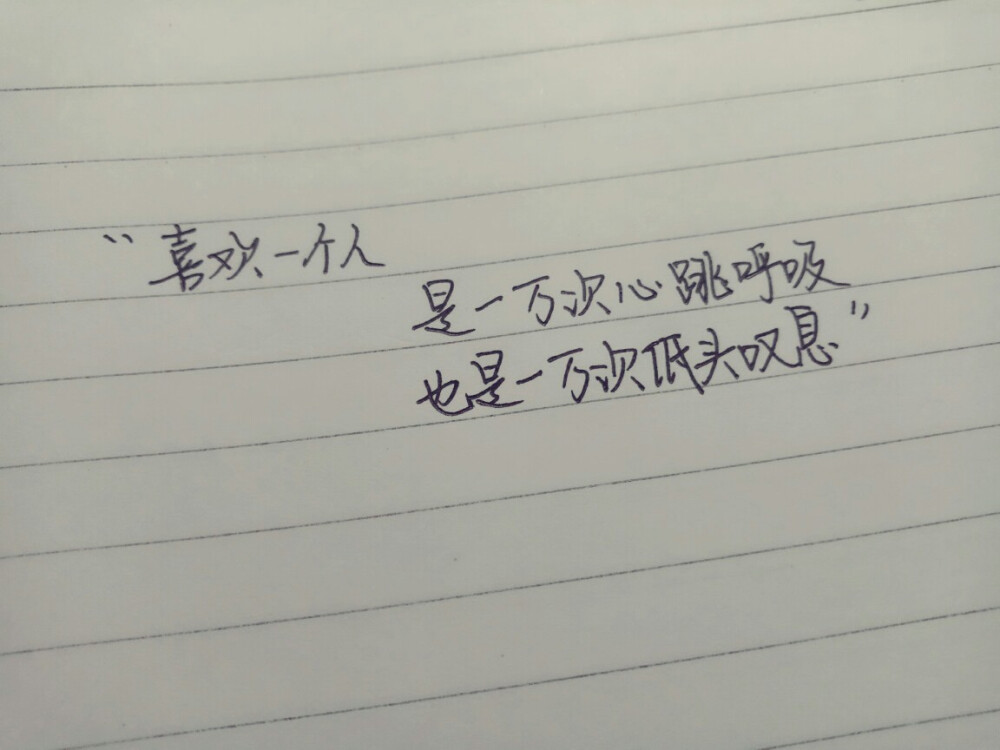 “喜欢一个人
是一万次心跳呼吸
也是一万次低头叹息”